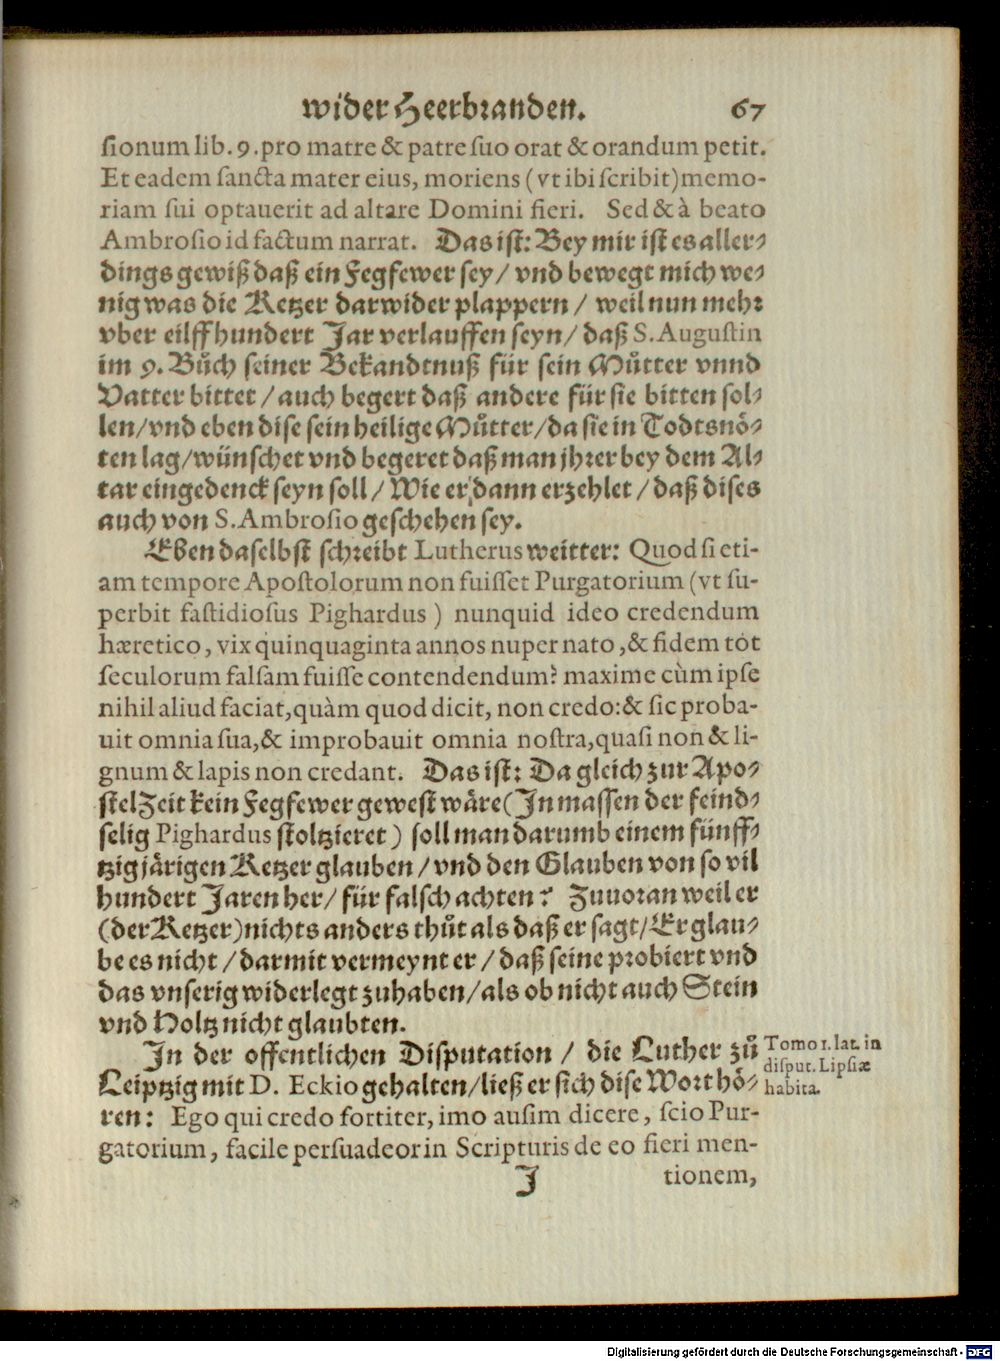 wider Heerbranden. 67
sionum lib. 9. pro matre & patre suo orat & orandum petit.
Et eadem sancta mater eius, moriens (vt ibi scribit) memo-
riam sui optauerit ad altare Domini fieri. Sed & à beato
Ambrosio id factum narrat. Das ist: Bey mir ist es aller-
dings gewiß daß ein Fegfewer sey / vnd bewegt mich we-
nig was die Ketzer darwider plappern / weil nun mehr
vber eilffhundert Jar verlauffen seyn / daß S. Augustin
im 9. Bůch seiner Bekandtnuß für sein Můtter vnnd
Vatter bittet / auch begert daß andere für sie bitten sol-
len / vnd eben dise sein heilige Můtter / da sie in Todtsnö-
ten lag / wünschet vnd begeret daß man jhrer bey dem Al-
tar eingedenck seyn soll / Wie er dann erzehlet / daß dises
auch von S. Ambrosio geschehen sey.
Eben daselbst schreibt Lutherus weitter: Quod si eti-
am tempore Apostolorum non fuisset Purgatorium (vt su-
perbit fastidiosus Pighardus) nunquid ideo credendum
hæretico, vix quinquaginta annos nuper nato, & fidem tot
seculorum falsam fuisse contendendum? maxime cùm ipse
nihil aliud faciat, quàm quod dicit, non credo: & sic proba-
uit omnia sua, & improbauit omnia nostra, quasi non & li-
gnum & lapis non credant. Das ist: Da gleich zur Apo-
stel Zeit kein Fegfewer gewest wäre (Inmassen der feind-
selig Pighardus stoltzieret) soll man darumb einem fünff-
tzigjärigen Ketzer glauben / vnd den Glauben von so vil
hundert Jaren her / für falsch achten? Zuuoran weil er
(der Ketzer) nichts anders thůt als daß er sagt / Er glau-
be es nicht / darmit vermeynt er / daß seine probiert vnd
das vnserig widerlegt zuhaben / als ob nicht auch Stein
vnd Holtz nicht glaubten.
In der offentlichen Disputation / die Luther zů
Leiptzig mit D. Eckio gehalten / ließ er sich dise Wort hö-
ren: Ego qui credo fortiter, imo ausim dicere, scio Pur-
gatorium, facile persuadeor in Scripturis de eo fieri men-
J tionem,
Tomo 1. lat. in
disput. Lipsiæ
habita.
Digitalisierung gefördert durch die Deutsche Forschungsgemeinschaft - DFG